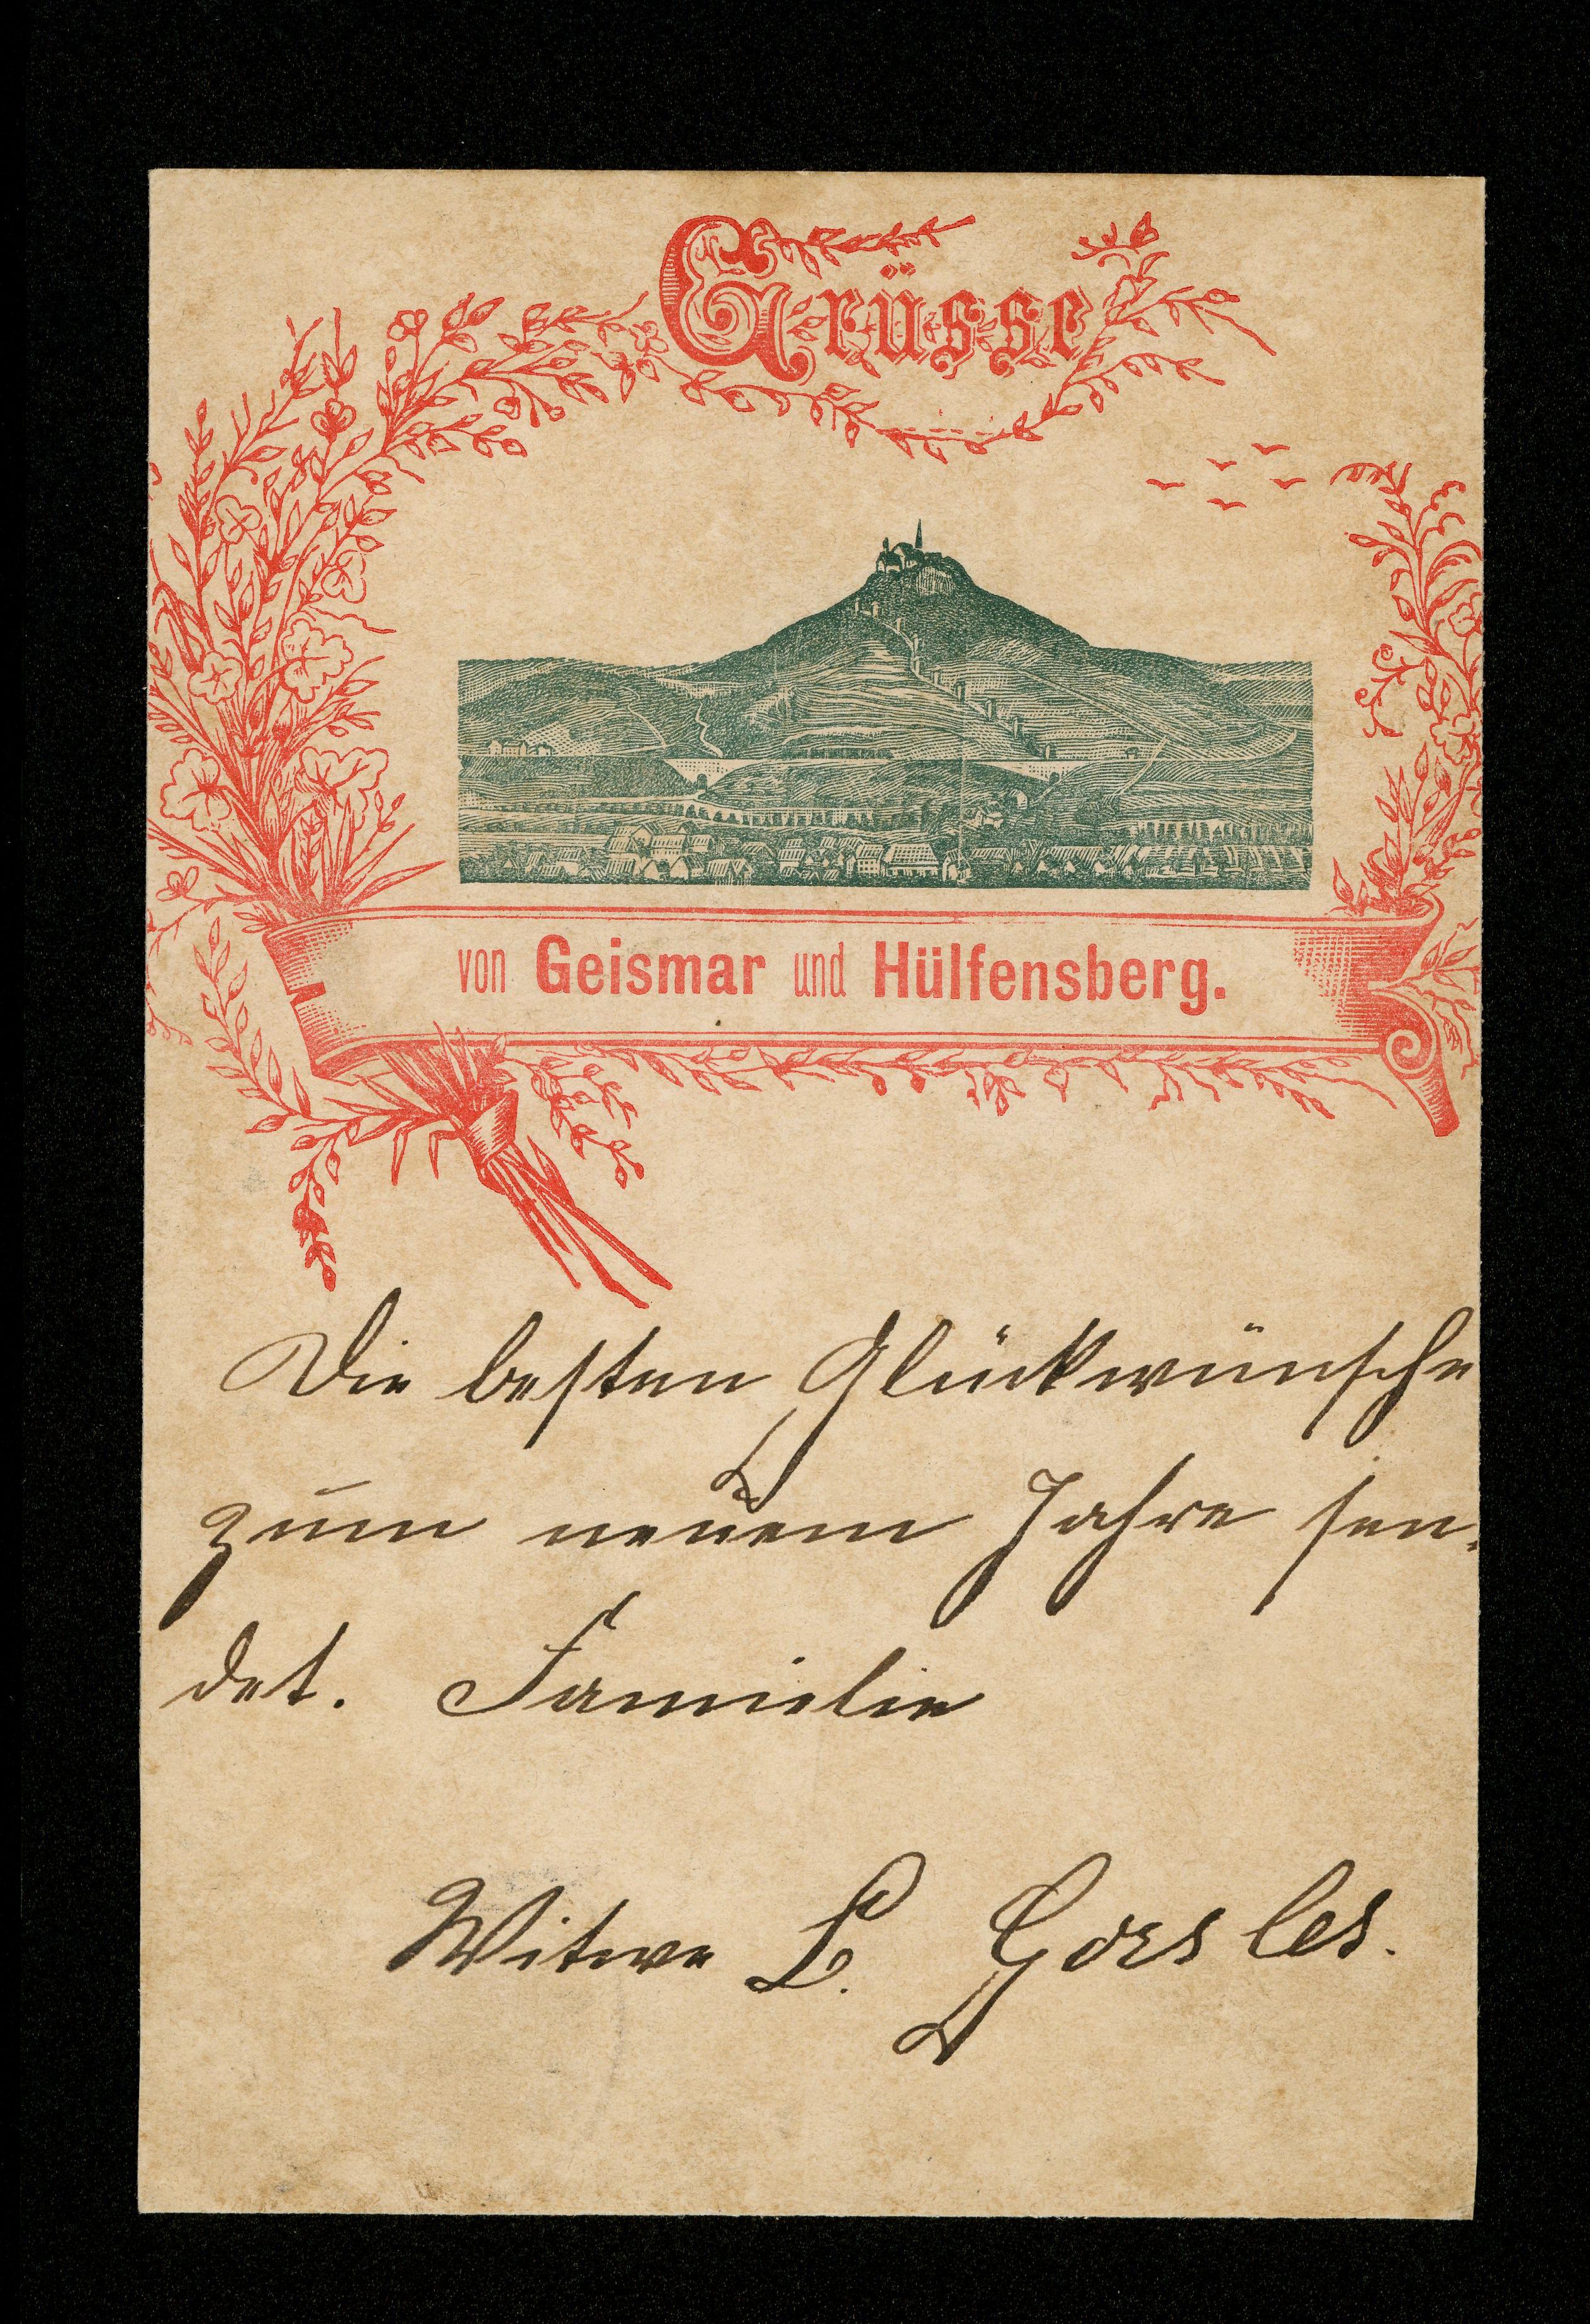 Grüsse
von Geismar und Hülfensberg.
Die besten Glückwünsche
zum neuem Jahre sen-
det. Familie
Witwe L.